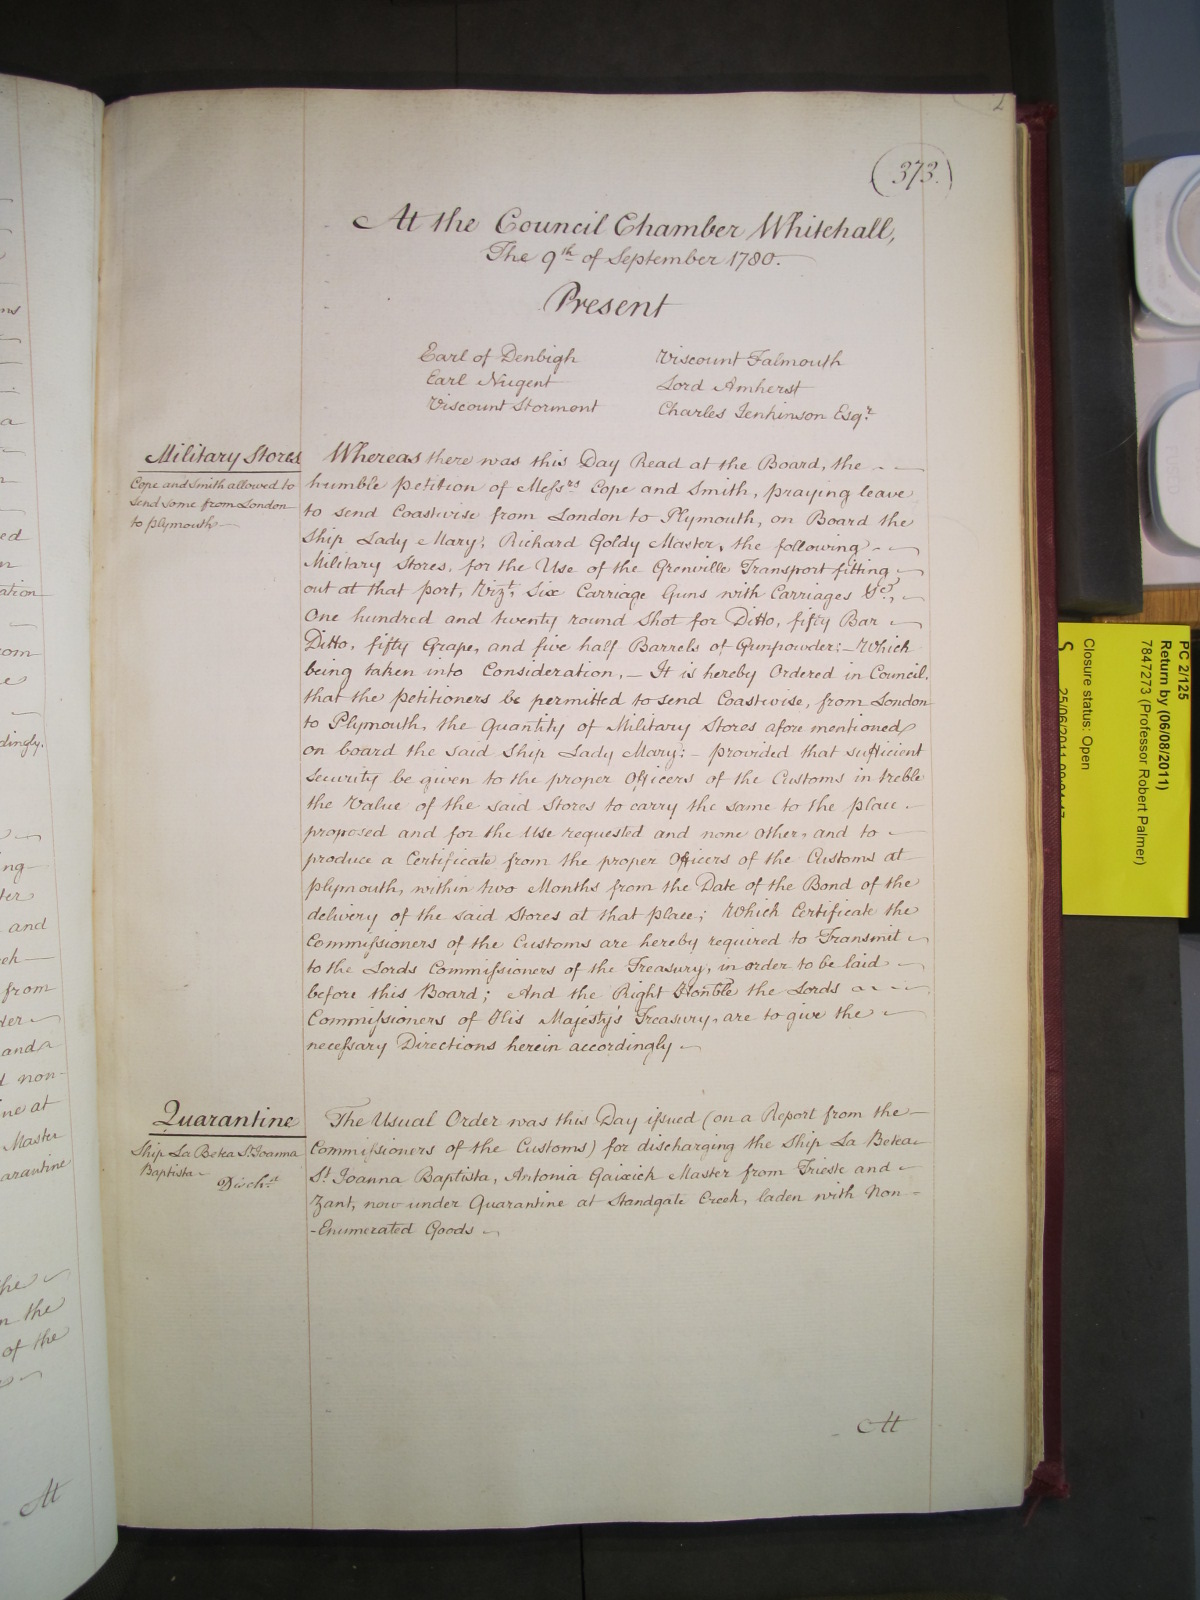 373.
At the Council Chamber Whitehall,
The 9th of September 1780.
Present
Earl of Denbigh
Earl Nugent
Viscount Stormont
Viscount Falmouth
Lord Amherst
Charles Jenkinson Esqr.
Military Stores
Cope and Smith allowed to
send some from London
to Plymouth
Whereas there was this Day Read at the Board, the
humble Petition of Messrs Cope and Smith, praying leave
to send Coastwise from London to Plymouth, on Board the
Ship Lady Mary, Richard Goldy Master, the following
Military Stores, for the Use of the Grenville Transport fitting
out at that Port, Vizt. Six Carriage Guns with Carriages &ca.,
One hundred and twenty round Shot for Ditto, fifty Bar
Ditto, fifty Grape, and five half Barrels of Gunpowder; — Which
being taken into Consideration, — It is hereby Ordered in Council,
that the Petitioners be permitted to send Coastwise, from London
to Plymouth, the Quantity of Military Stores afore mentioned
on board the said Ship Lady Mary: — provided that sufficient
Security be given to the proper Officers of the Customs in treble
the Value of the said Stores to carry the same to the place
proposed and for the Use requested and none other, and to
produce a Certificate from the proper Officers of the Customs at
Plymouth, within two Months from the Date of the Bond of the
delivery of the said Stores at that Place; Which Certificate the
Commissioners of the Customs are hereby required to Transmit
to the Lords Commissioners of the Treasury, in order to be laid
before this Board; And the Right Honble the Lords
Commissioners of His Majesty's Treasury, are to give the
necessary Directions herein accordingly —
Quarantine
Ship La Betea St. Joanna
Baptista
Disch:d
The Usual Order was this Day issued (on a Report from the
Commissioners of the Customs) for discharging the Ship La Betea
St. Joanna Baptista, Antonia Master from Trieste and
Zant, now under Quarantine at Standgate Creek, laden with Non-
-Enumerated Goods
At
ms
a
ed
n
ation
om
e
dingly.
ng
ter
and
from
der
and a
non-
ne at
Master
arantine
the
n the
of the
At
PC 2/125
Return by (06/08/2011)
7847273 (Professor Robert Palmer)
Closure status: Open
S